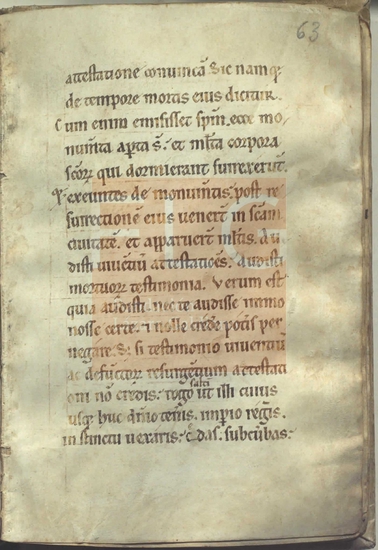 63
attestatione convincā Sic namq;
de tempore mortis eius dicitur.
Cum enim emisisset spm̄. ecce mo/
numta apta s̄. et mlta corpora
scōrꝝ qui dormierant surrexerūt.
exeuntes de monumtis. post re
surrectionē eius venert in scam̄
civitatē. et apparuert mltis. Au
disti viventiū attestatioēs. audisti
mortuorꝝ testimonia. Verum est
quia audisti. nec te audisse nimio
nosse certe. ⁊ nolle credere potis per
negare. Si testimonio viventiū
ac defunctorꝝ resurgētium attestati
oni nō credis. rogo ut illi cuius
salti
usq; huc dn̄io teneris. impio regis.
instinctu vexaris. cedas. subcūbas.